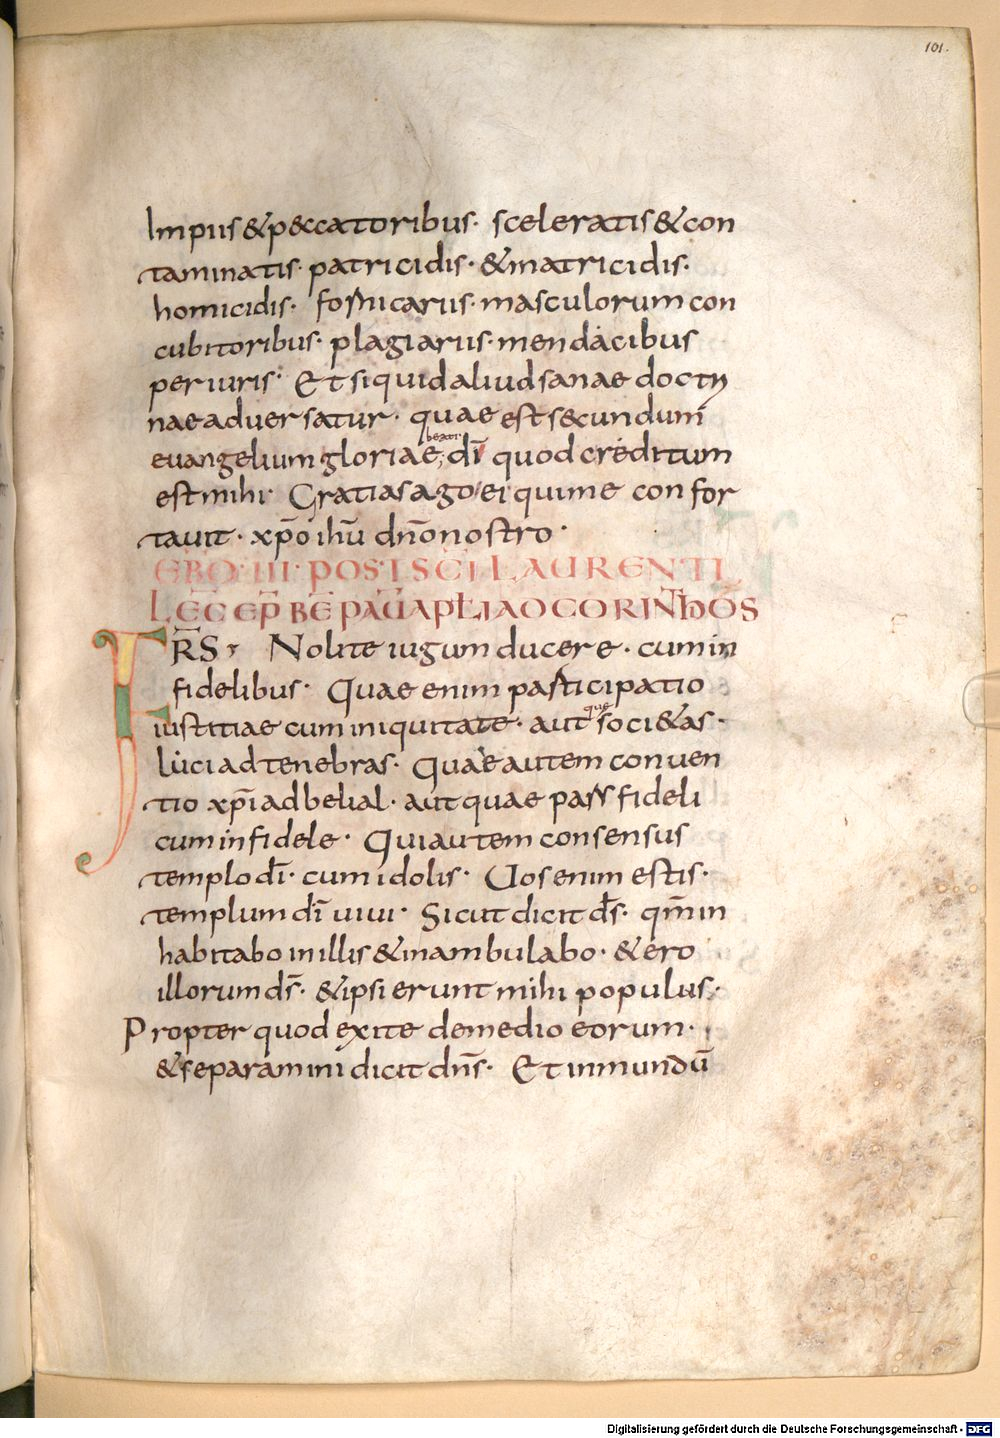 101.
Impiis & p&ccatoribus· sceleratis & con
taminatis· patricidis· & matricidis·
homicidis· fornicariis· masculorum con
cubitoribus· plagiariis· mendacibus
periuris· Et siquid aliud sanae doctri
nae aduersatur· quae est s&cundum
beati
euangelium gloriae, dī quod creditum
est mihi· Gratias ago ei qui me confor
tauit· xp̄o ihū dn̄o nostro·
EBD·III·POST SC̄I LAURENTI
LEC̄ EP̄ BĒ PAŪ APŁI AD CORINTHŌS
FR̄S, Nolite iugum ducere· cum in
fidelibus· Quae enim participatio
que
iustitiae cum iniquitate· aut soci&as·
luci ad tenebras· Quae autem conuen
tio xp̄i ad belial· aut quae pars fideli
cum infidele· Qui autem consensus
templo dī· cum idolis· Uos enim estis·
templum dī uiui· Sicut dicit ds̄· qm̄ in
habitabo in illis & inambulabo· & ero
illorum ds̄· & ipsi erunt mihi populus·
Propter quod exite de medio eorum·
& separamini dicit dn̄s· Et inmundū
Digitalisierung gefördert durch die Deutsche Forschungsgemeinschaft - DFG